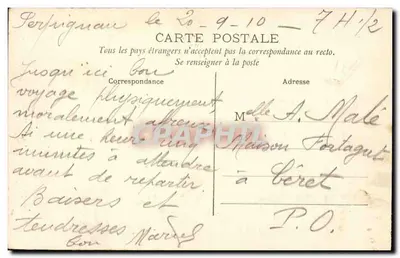 Perpignan le 20-9-10 - 7 H 1/2
CARTE POSTALE
Tous les pays étrangers n'acceptent pas la correspondance au recto.
Se renseigner à la poste
Correspondance
Adresse
Jusqu'ici bon
voyage physiquement
moralement affreux
Ai une heure cinq
minutes à attendre
avant de repartir.
Baisers et
tendresses.
Melle A. Malé
Maison
à Céret
P.O.